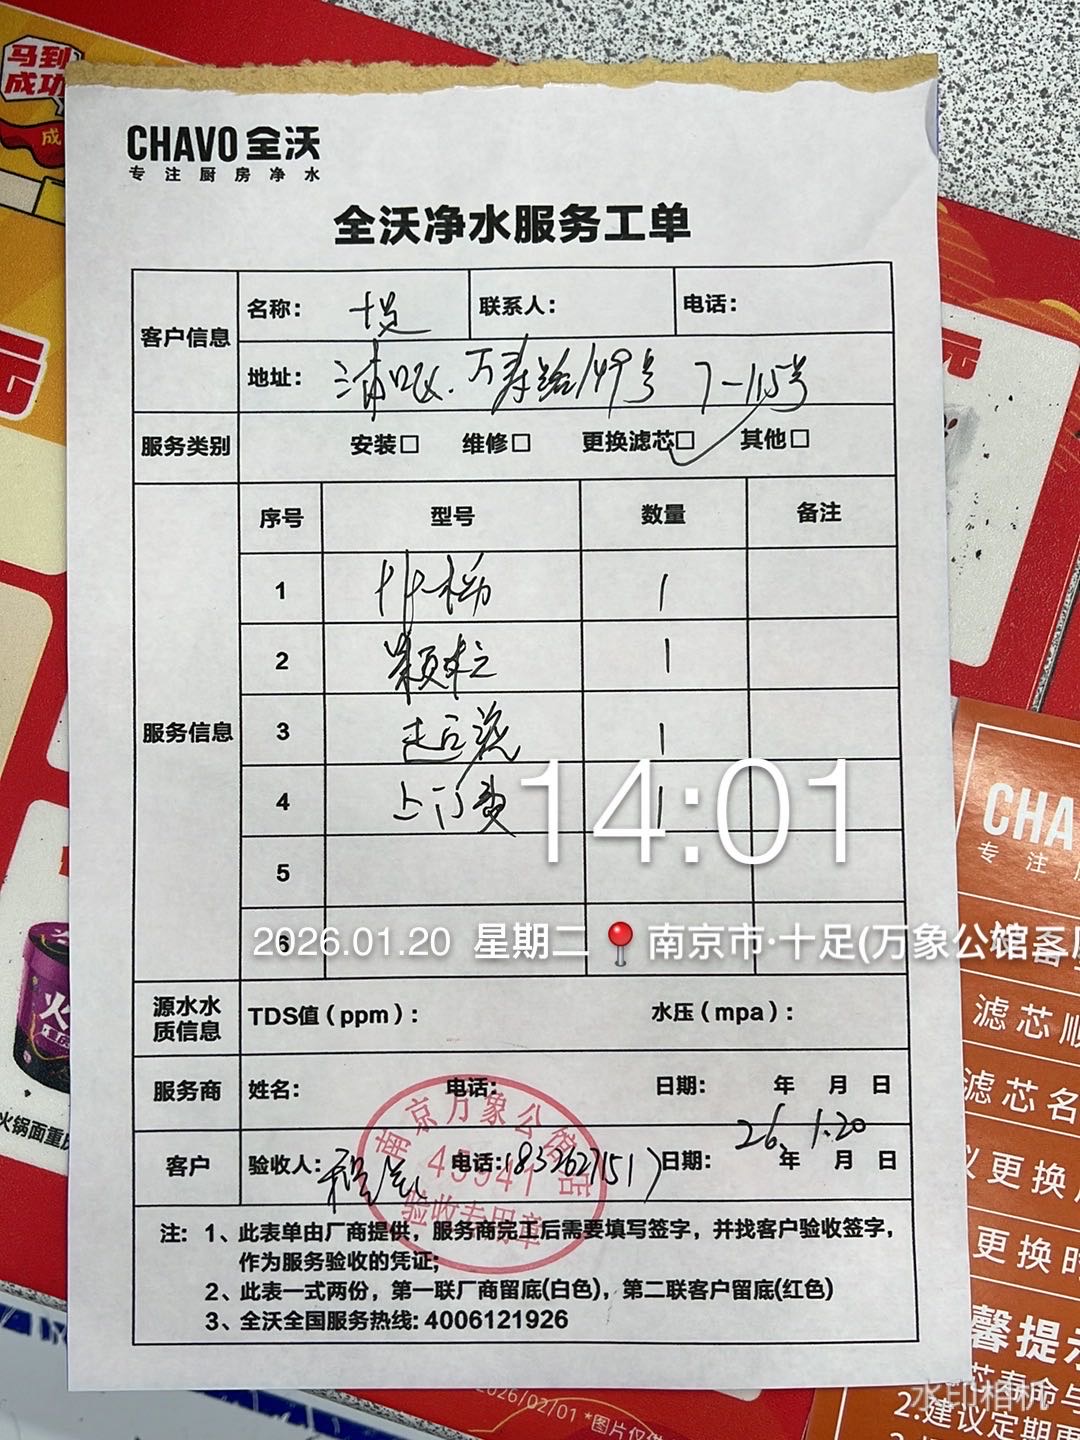 马到
成功
成
元
元
CHAVO 全沃
专注厨房净水
全沃净水服务工单
客户信息
名称: 十足
联系人:
电话:
地址: 浦口区.万寿路149号 7-115号
服务类别
安装□ 维修□ 更换滤芯□✓ 其他□
服务信息
序号 型号 数量 备注
1 PP棉 1
2 颗粒 1
3 超后滤 1
4 上门费 1
5
6
14:01
2026.01.20 星期二 📍南京市·十足(万象公馆二
源水水质信息
TDS值(ppm): 水压(mpa):
服务商
姓名: 电话: 日期: 年 月 日
26.1.20
客户
验收人: 电话: 18352627151 日期: 年 月 日
南京万象公馆店
45941
验收专用章
注: 1、此表单由厂商提供,服务商完工后需要填写签字,并找客户验收签字,
作为服务验收的凭证;
2、此表一式两份,第一联厂商留底(白色),第二联客户留底(红色)
3、全沃全国服务热线: 4006121926
CHA
专注
滤芯顺
滤芯名
议更换
更换时
馨提示
芯寿命与
2.建议定期更
火锅面重庆
2026/02/01 *图片仅供
水印相机